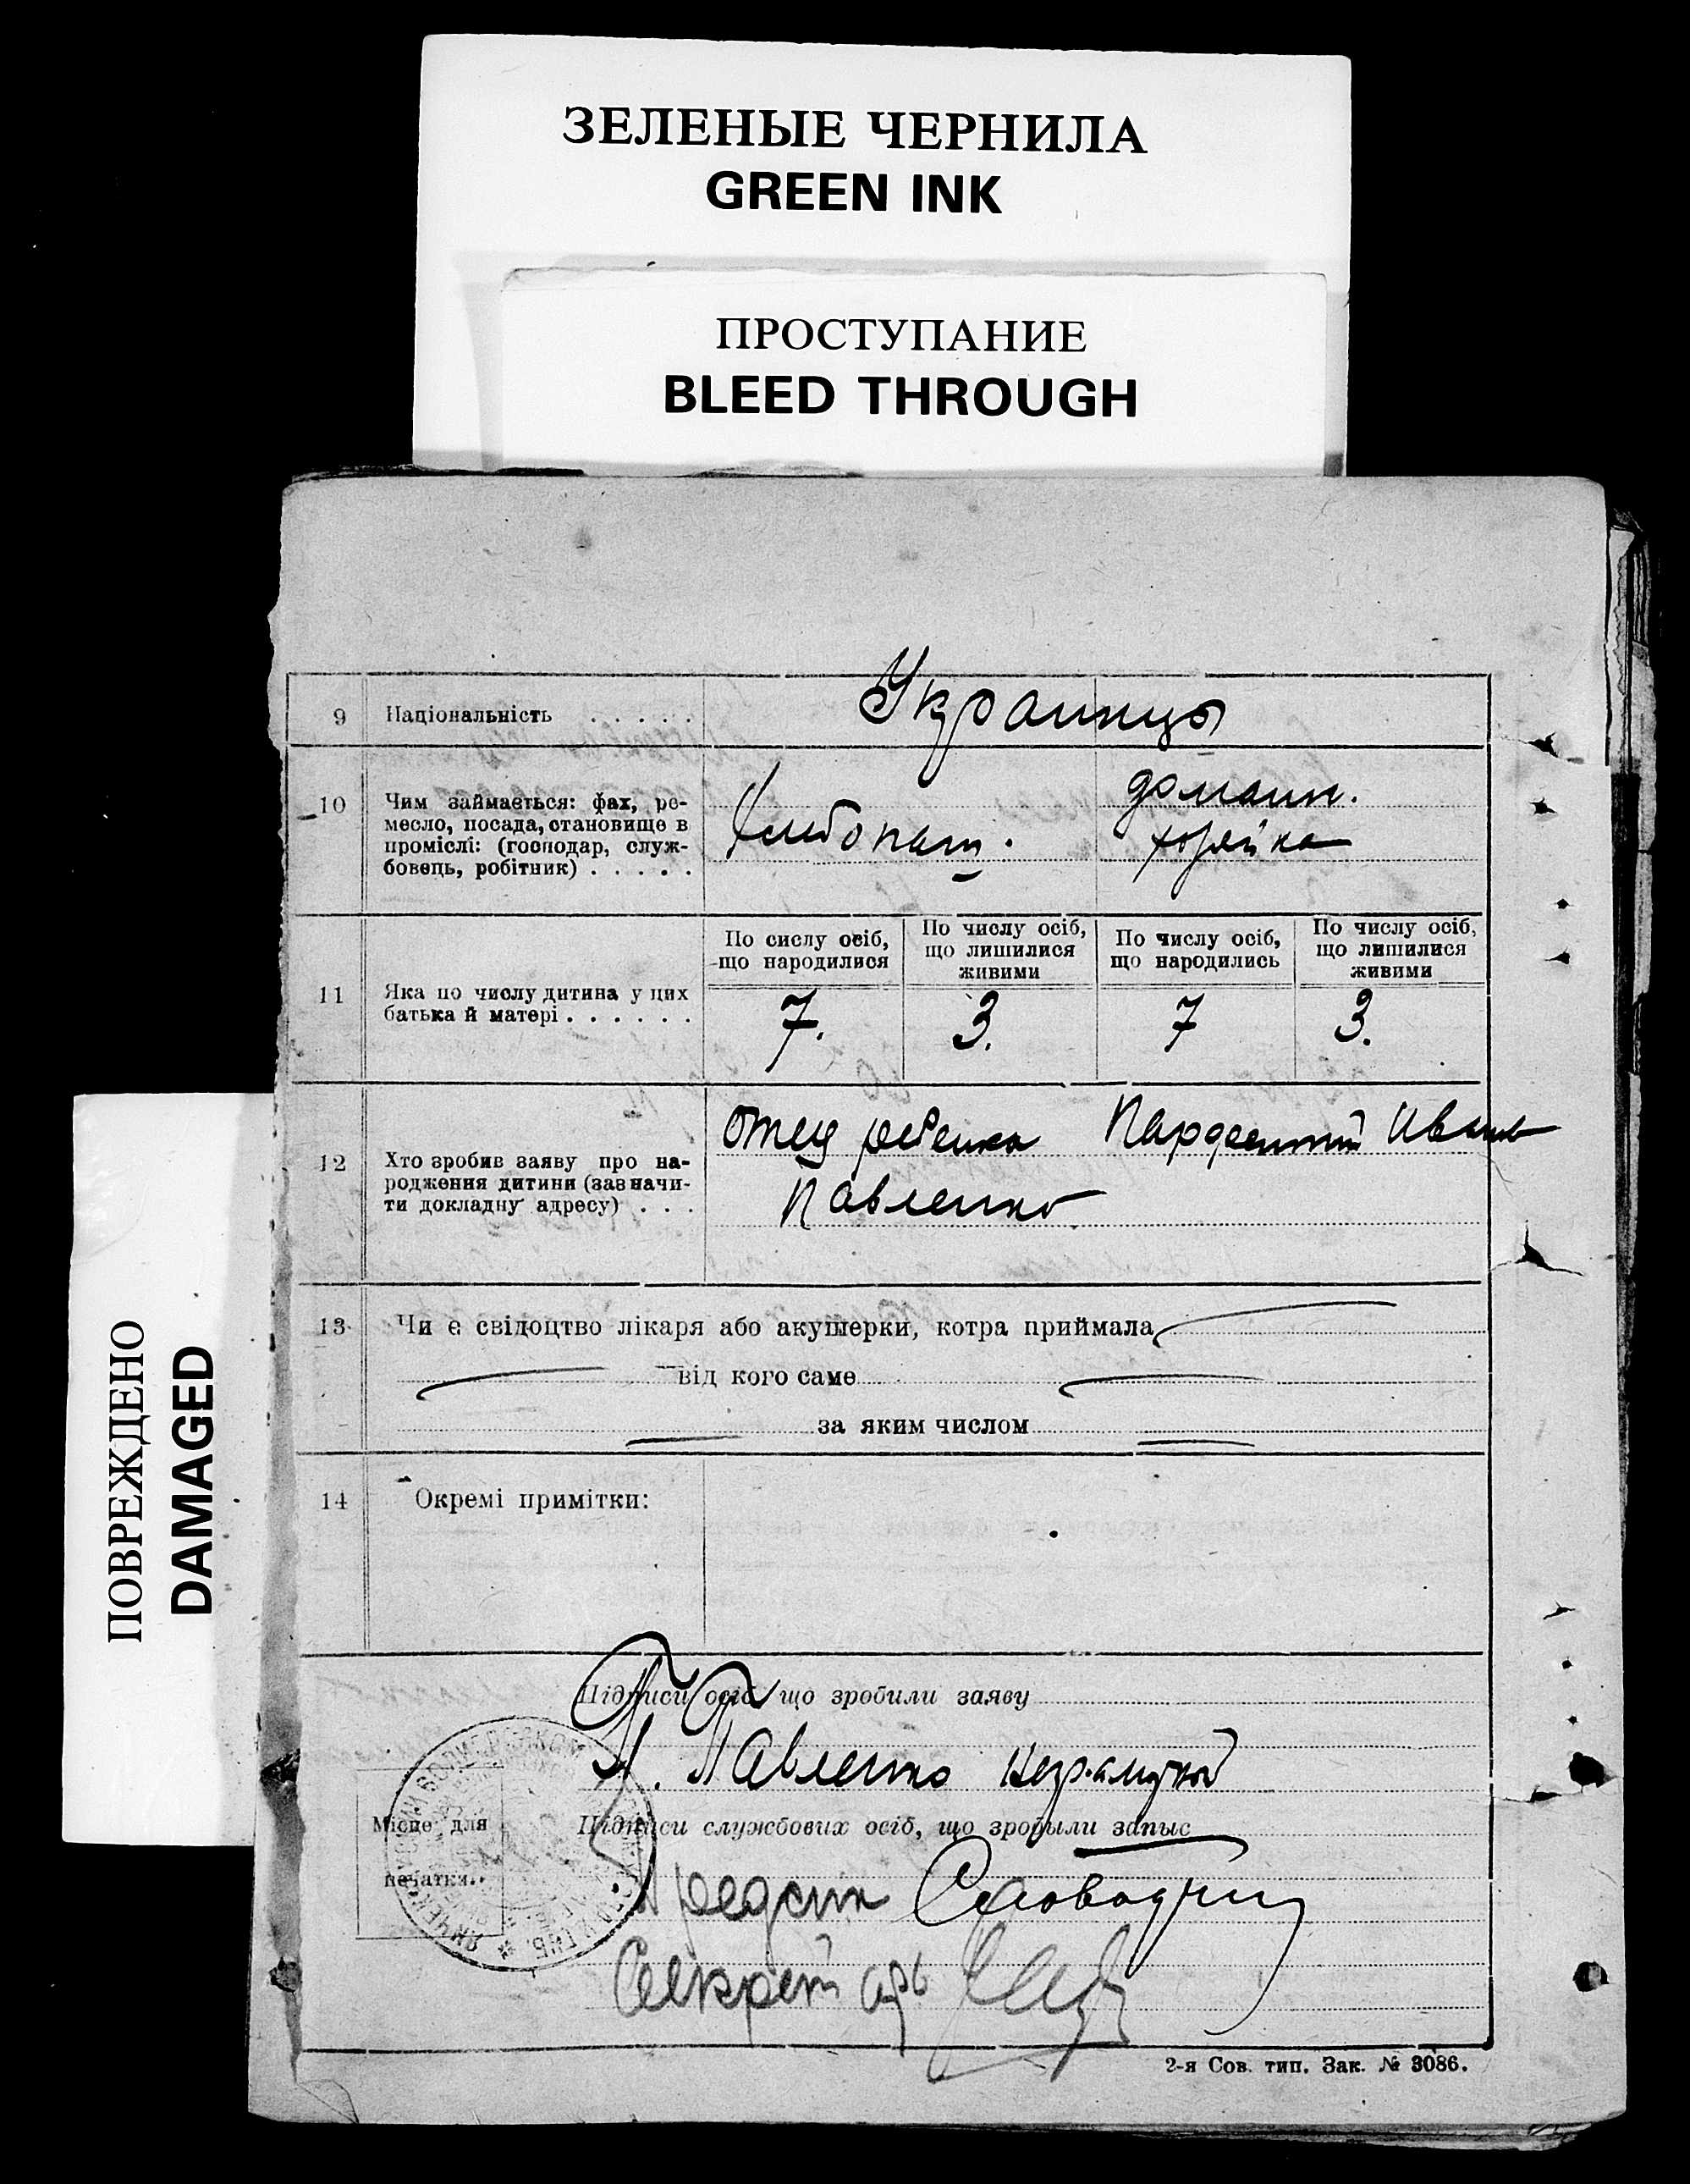 ЗЕЛЕНЫЕ ЧЕРНИЛА
GREEN INK
ПРОСТУПАНИЕ
BLEED THROUGH
ПОВРЕЖДЕНО
DAMAGED
9 Національність . . . . . Украинцы
10 Чим займається: фах, ре-
месло, посада, становище в
проміслі: (господар, служ-
бовець, робітник) . . . . .
хлебопаш.
домашн.
хозяйка
11 Яка по числу дитина у цих
батька й матері . . . . . .
По сислу осіб,
що народилися
7.
По числу осіб,
що лишилися
живими
3.
По числу осіб,
що народились
7
По числу осіб,
що лишилися
живими
3.
12 Хто зробив заяву про на-
родження дитини (зазначи-
ти докладну адресу) . . .
отец ребенка Иван
Павленко
13 Чи є свідоцтво лікаря або акушерки, котра приймала
від кого саме
за яким числом
14 Окремі примітки:
Підписи осіб що зробили заяву
Павленко
Місце для
печатки.
Підписи службових осіб, що зробыли запыс
Секретарь
2-я Сов. тип. Зак. № 3086.